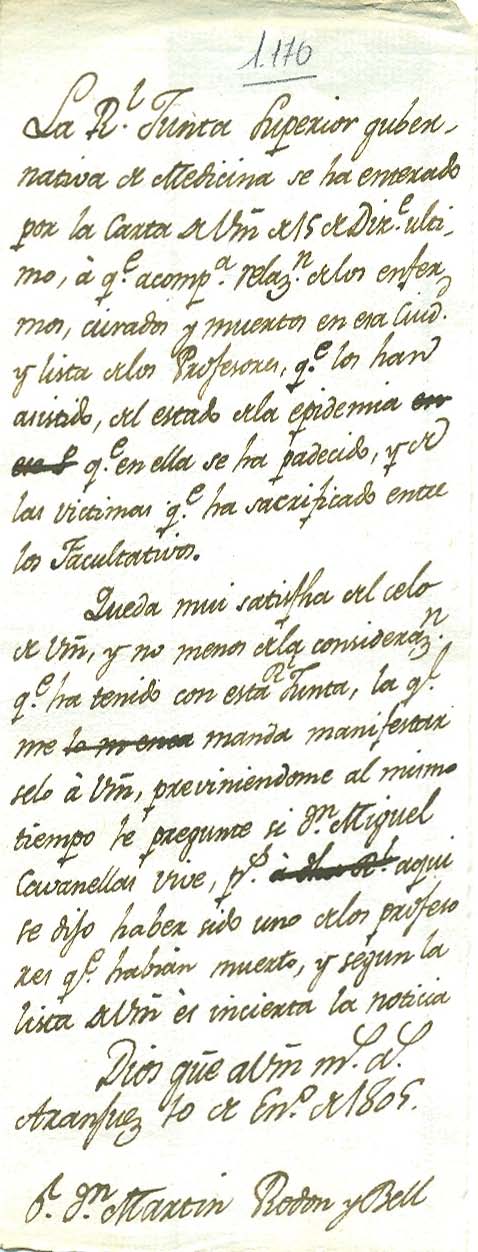 1.176
La R.l Junta Superior guber-
nativa de Medicina se ha enterado
por la Carta de Vm̃ de 15 de Dix.e ulti-
mo, à q.e acomp.a relaz.n de los enfer
mos, curados y muertos en esa Ciud.d
y lista de los Profesores, q.e los han
asistido, del estado de la epidemia en
ese P q.e en ella se ha padecido, y de
las victimas q.e ha sacrificado entre
los Facultativos.
Queda mui satisfha del celo
de Vm̃, y no menos de la consideraz.n
q.e ha tenido con esta R.l Junta, la q.l
me manda manifestar
selo à Vm̃, previniendome al mismo
tiempo le pregunte si d.n Miguel
Cavanellas vive, p.s à dha R.l aqui
se dijo haber sido uno de los profeso
res q.e habian muerto, y segun la
lista de Vm̃ ès incierta la noticia
Dios gũe a Vm̃ m.s a.s
Aranjuez 10 de En.o de 1805.
S.r d.n Martin Rodon y Bell